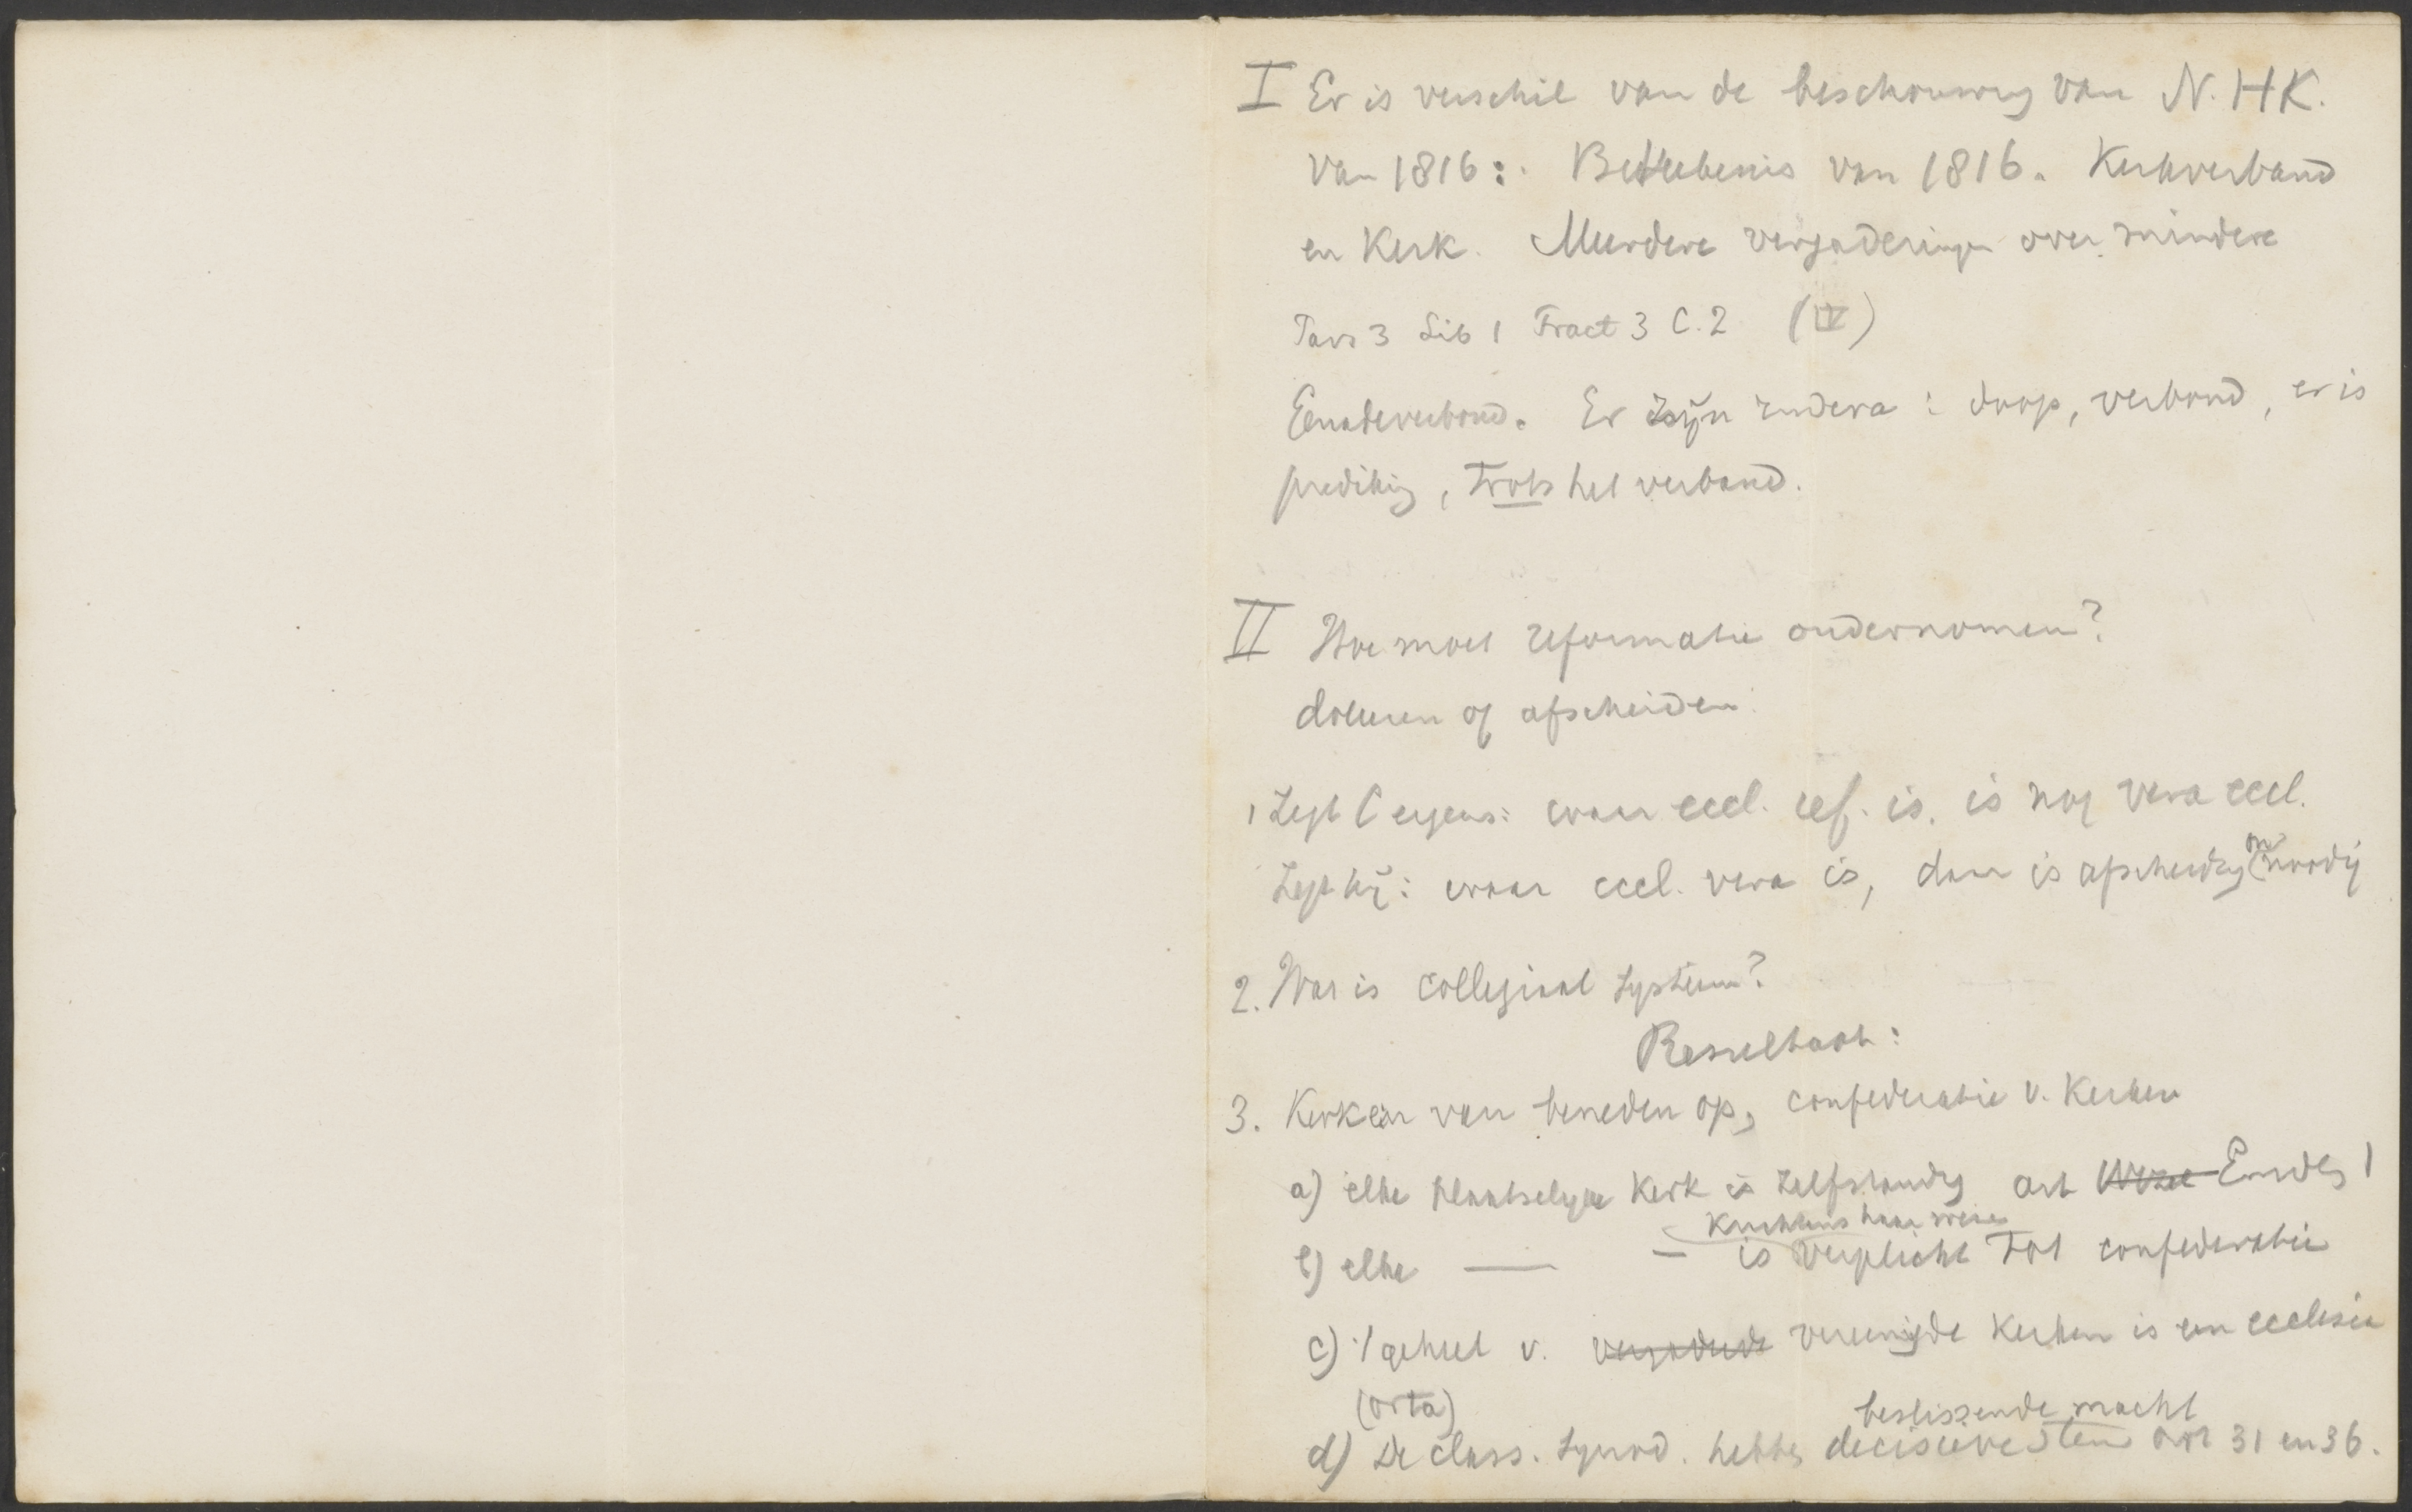 I Er is verschil van de beschouwing van N.H.K.
van 1816: Betekenis van 1816. Kerkverband
en Kerk. Meerdere vergaderingen over mindere
Pars 3 Lib 1 Tract 3 C.2 (IV)
Genadeverbond. Er zijn rudera: doop, verbond, er is
prediking, trots het verband.
II Hoe moet reformatie ondernomen?
doleren of afscheiden
1 Zegt C ergens: waar eccl. ref. is, is nog vera eccl.
Zegt hij: waar eccl. vera is, dan is afscheiding onnoodig
2. Wat is collegiaal systeem?
Resultaat:
3. Kerken van beneden op, confederatie v. Kerken
a) elke plaatselyke Kerk is zelfstandig art Wezel Emden 1
krachtens haar wezen
b) elke — — is verplicht tot confederatie
c) 't geheel v. vergaderde vereenigde Kerken is een ecclesia
(orta)
beslissende macht
d) De class. synod. hebben decisieve stem art 31 en 36.